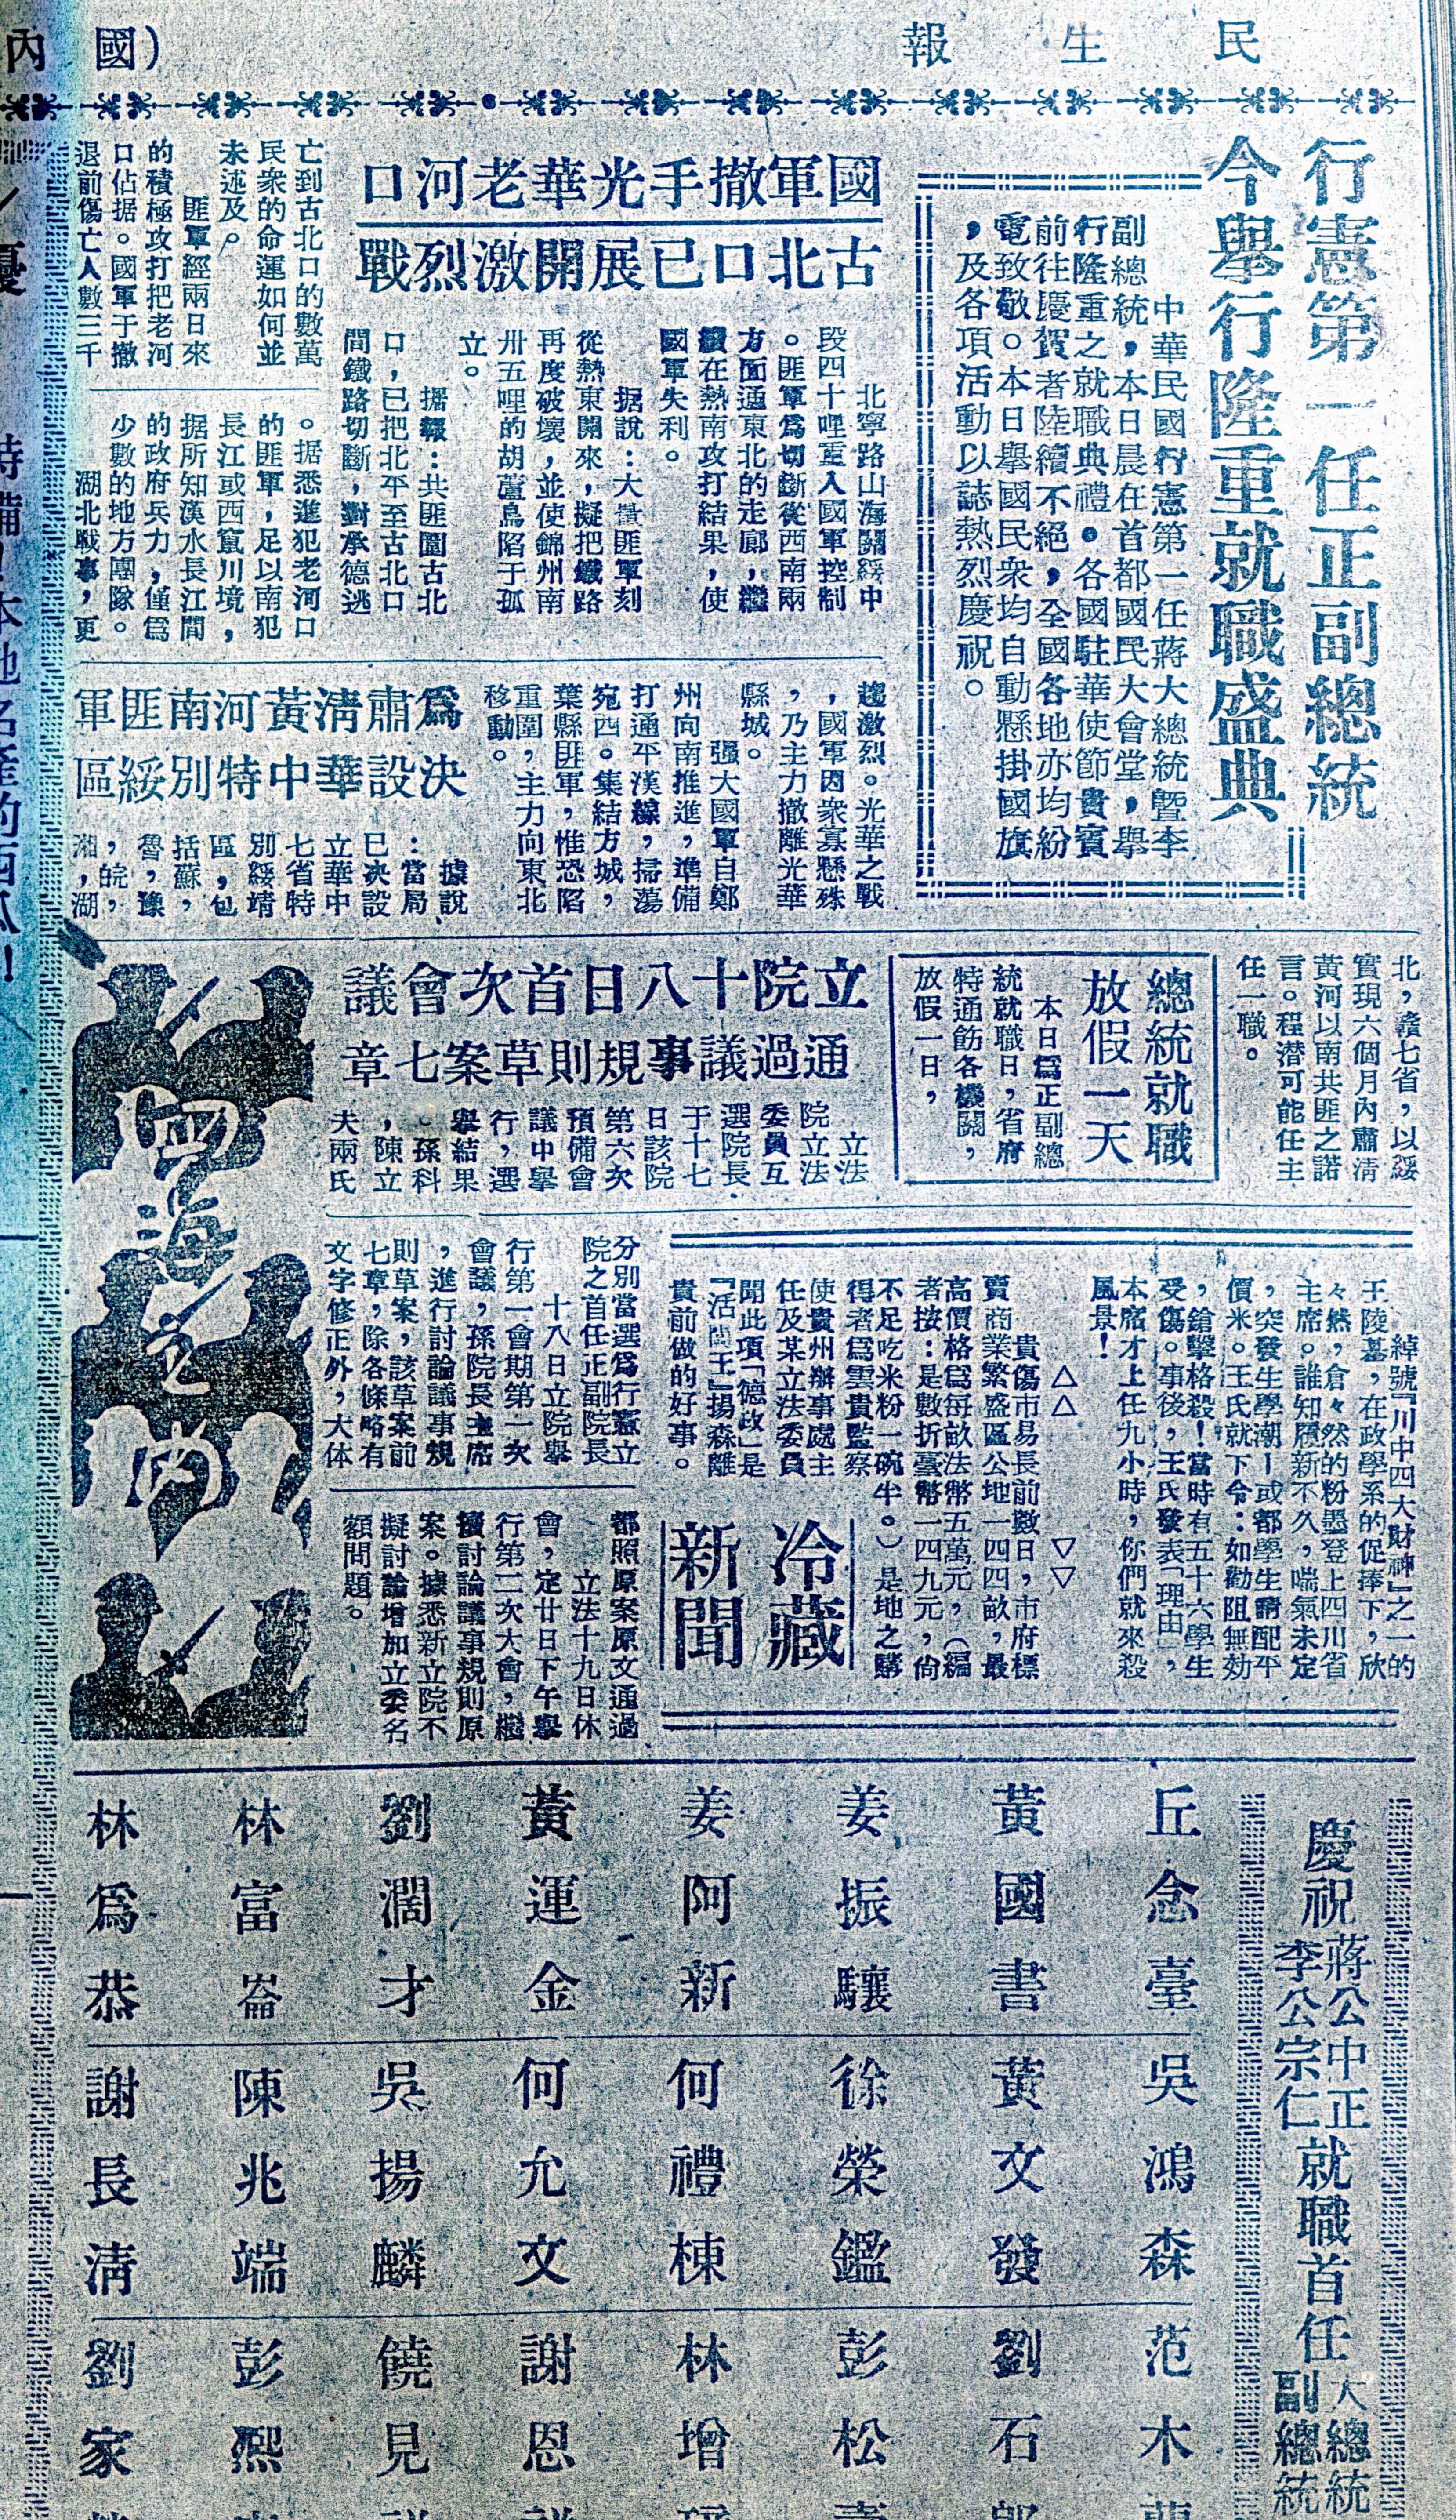 民生報
(國內
行憲第一任正副總統
今舉行隆重就職盛典
中華民國行憲第一任蔣大總統暨李
副總統，本日晨在首都國民大會堂，舉
行隆重之就職典禮。各國駐華使節貴賓
前往慶賀者陸續不絕，全國各地亦均紛
電致敬。本日舉國民衆均自動懸掛國旗
，及各項活動以誌熱烈慶祝。
國軍撤手光華老河口
古北口已展開激烈戰
北寧路山海關綏中
段四十哩重入國軍控制
。匪軍爲切斷從西南兩
方面通東北的走廊，繼
續在熱南攻打結果，使
國軍失利。
据說：大量匪軍刻
從熱東開來，擬把鐵路
再度破壞，並使錦州南
卅五哩的胡蘆島陷于孤
立。
据報：共匪圍古北
口，已把北平至古北口
間鐵路切斷，對承德逃
亡到古北口的數萬
民衆的命運如何並
未述及。
匪軍經兩日來
的積極攻打把老河
口佔据。國軍于撤
退前傷亡人數三千
。据悉進犯老河口
的匪軍，足以南犯
長江或西竄川境，
据所知漢水長江間
的政府兵力，僅爲
少數的地方團隊。
湖北戰事，更
趨激烈。光華之戰
，國軍因衆寡懸殊
，乃主力撤離光華
縣城。
强大國軍自鄭
州向南推進，準備
打通平漢線，掃蕩
宛西。集結方城，
葉縣匪軍，惟恐陷
重圍，主力向東北
移動。
爲肅清黃河南匪軍
決設華中特別綏區
據說
：當局
已決設
立華中
七省特
別綏靖
區，包
括蘇，
魯，豫
，皖，
湘，湖
北，贛七省，以綏
實現六個月內肅清
黃河以南共匪之諾
言。程潛可能任主
任一職。
總統就職
放假一天
本日爲正副總
統就職日，省府
特通飭各機關，
放假一日，
立院十八日首次會議
通過議事規則草案七章
立法
院立法
委員互
選院長
于十七
日該院
第六次
預備會
議中舉
行，選
舉結果
。孫科
，陳立
夫兩氏
分別當選爲行憲立
院之首任正副院長
十八日立院舉
行第一會期第一次
會議，孫院長主席
，進行討論議事規
則草案，該草案前
七章，除各條略有
文字修正外，大体
都照原案原文通過
立法十九日休
會，定廿日下午舉
行第二次大會，繼
續討論議事規則原
案。據悉新立院不
擬討論增加立委名
額問題。
冷藏
新聞
綽號『川中四大財神』之一的
王陵基，在政學系的促捧下，欣
々然，倉々然的粉墨登上四川省
主席。誰知履新不久，喘氣未定
，突發生學潮—或都學生請配平
價米。王氏就下令：如勸阻無効
，鎗擊格殺！當時有五十六學生
受傷。事後，王氏發表『理由』，
本席才上任九小時，你們就來殺
風景！
△△ ▽▽
貴傷市易長前數日，市府標
賣商業繁盛區公地一四四畝，最
高價格爲每畝法幣五萬元，（編
者按：是數折臺幣一四九元，尙
不足吃米粉一碗半。）是地之購
得者爲雲貴監察
使貴州辦事處主
任及某立法委員
聞此項「德政」是
『活閻王』揚森離
貴前做的好事。
四海之內
慶祝 蔣公中正 李公宗仁 就職首任 大總統 副總統
丘念臺
黃國書
姜振驤
姜阿新
黃運金
劉濶才
林富崙
林爲恭
吳鴻森
黃文發
徐榮鑑
何禮棟
何允文
吳揚麟
陳兆端
謝長淸
范木
劉石
彭松
林增
謝恩
饒見
彭熙
劉家